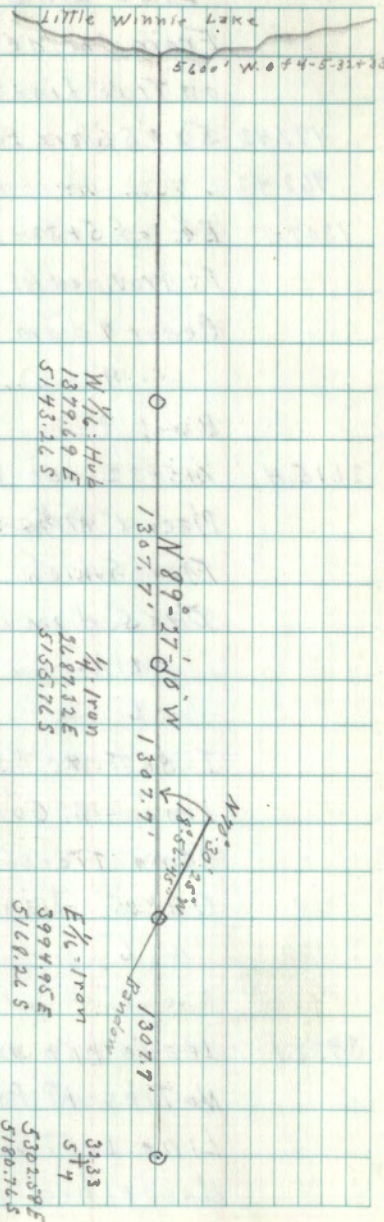 Little Winnie Lake
5600' W. of 4-5-32+33
W 1/16: Hub
1379.69 E
5143.26 S
1307.7'
N 89°-27'-10" W
1/4 Iron
2687.32 E
5155.76 S
1307.7'
N 70°-30'-25" W
18°-57'-45"
Random
E 1/16 - Iron
3994.95 E
5168.26 S
1307.7'
32,33
5 + 4
5302.58 E
5180.76 S